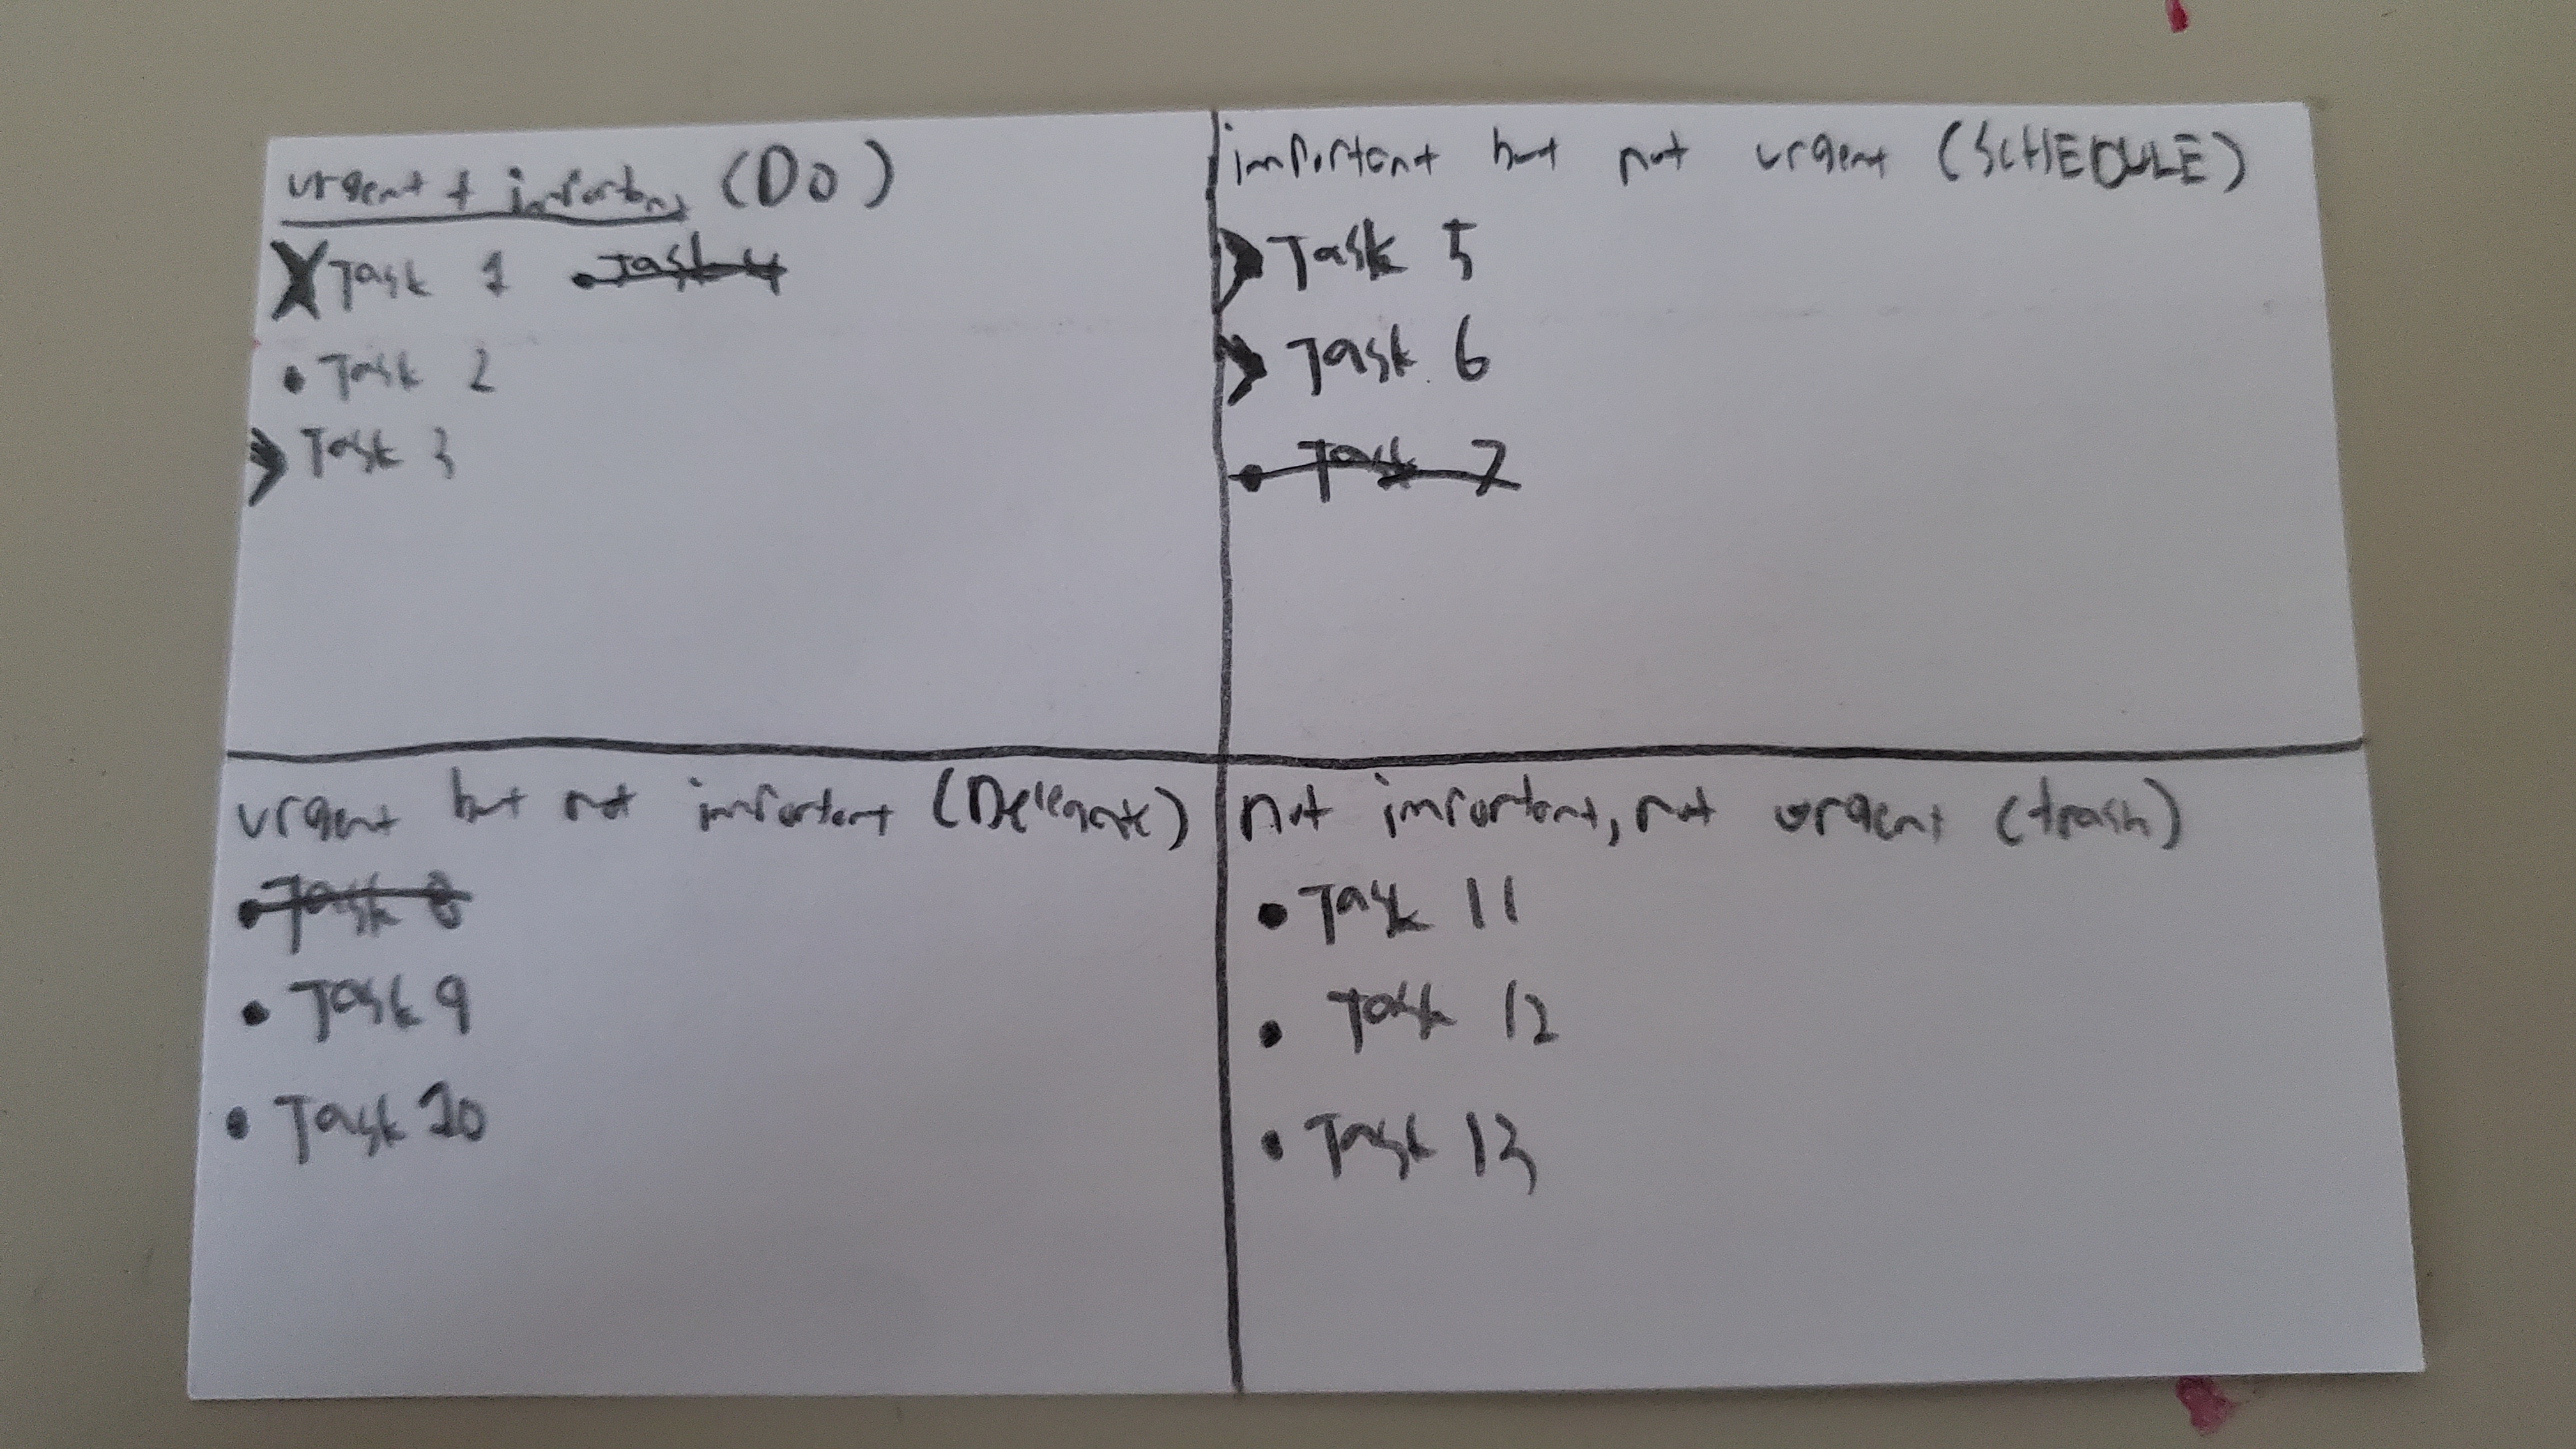 urgent + important (DO)
X Task 1 • Task 4
• Task 2
> Task 3
important but not urgent (SCHEDULE)
> Task 5
> Task 6
• Task 7
urgent but not important (Delegate)
• Task 8
• Task 9
• Task 10
not important, not urgent (trash)
• Task 11
• Task 12
• Task 13